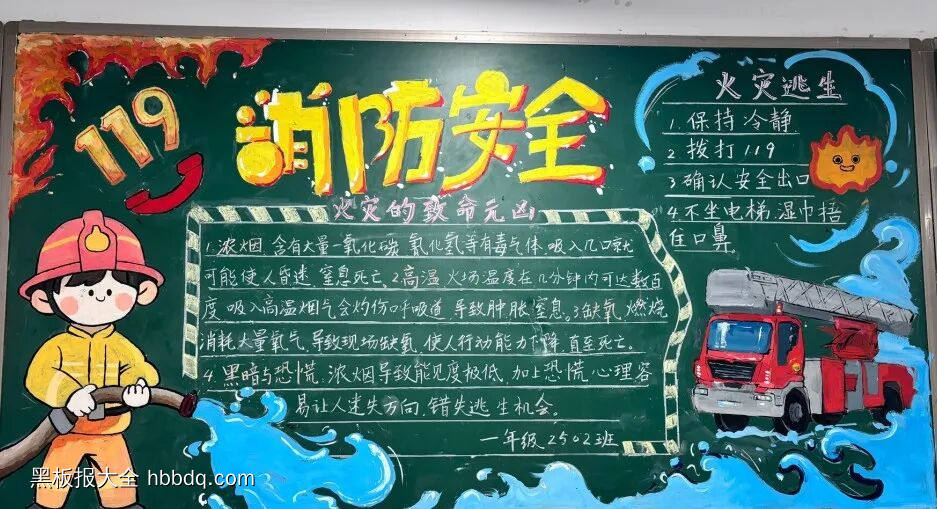 119
消防安全
火灾的致命元凶
1.浓烟 含有大量一氧化碳 氰化氢等有毒气体 吸入几口就
可能使人昏迷 窒息死亡。2.高温 火场温度在几分钟内可达数百
度 吸入高温烟气会灼伤呼吸道 导致肿胀 窒息。3.缺氧 燃烧
消耗大量氧气 导致现场缺氧 使人行动能力下降 直至死亡。
4.黑暗与恐慌 浓烟导致能见度极低 加上恐慌心理容
易让人迷失方向,错失逃生机会。
一年级2502班
火灾逃生
1.保持冷静
2 拨打119
3 确认安全出口
4.不坐电梯,湿巾捂
住口鼻
黑板报大全 hbbdq.com